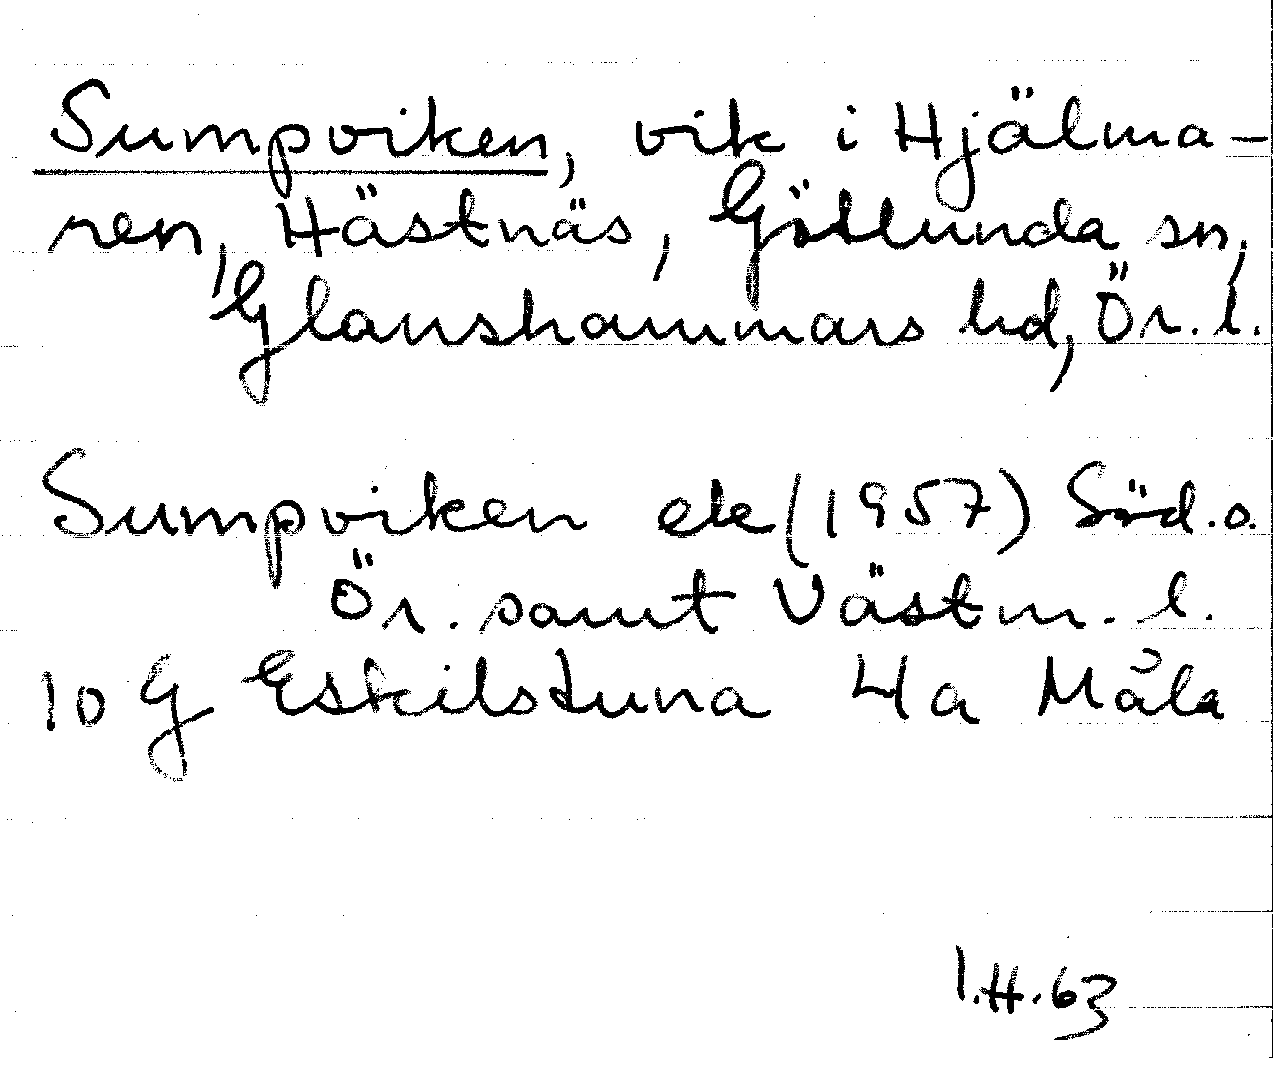 Sumpviken, vik i Hjälma-
ren, Hästnäs, Götlunda sn,
Glanshammars hd, Ör. l.
Sumpviken ek (1957) Söd. o.
Ör. samt Västm. l.
10 G Eskilstuna 4a Måla
I.H.63